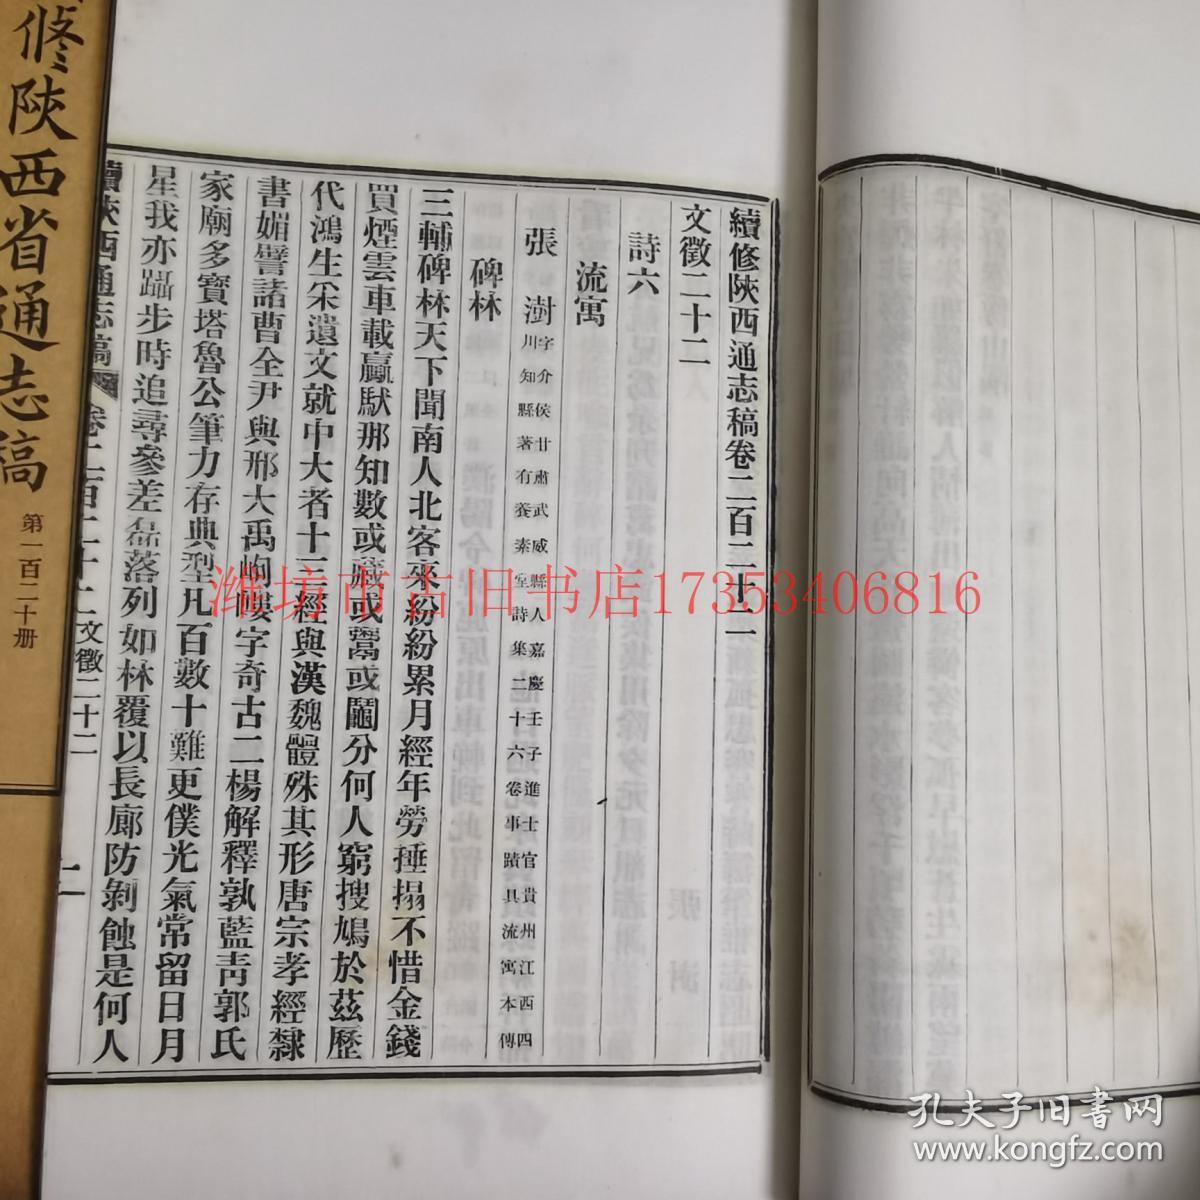 續修陝西通志稿卷二百二十二
文徵二十二
詩六
流寓
張澍 字介侯甘肅武威縣人嘉慶壬子進士官貴州江西四
川知縣著有養素堂詩集二十六卷事蹟具流寓本傳
碑林
三輔碑林天下聞南人北客來紛紛累月經年勞捶搨不惜金錢
買煙雲車載贏馱那知數或藏或鬻或鬭分何人窮搜鳩於茲歷
代鴻生采遺文就中大者十三經與漢魏體殊其形唐宗孝經隸
書媚譬諸曹全尹與邢大禹岣嶁字奇古二楊解釋孰藍青郭氏
家廟多寶塔魯公筆力存典型凡百數十難更僕光氣常留日月
星我亦躡步時追尋參差磊落列如林覆以長廊防剝蝕是何人
續陝西通志稿 卷二百二十二 文徵二十二 一
修陝西省通志稿
第一百二十册
潍坊市古旧书店17353406816
孔夫子旧书网
www.kongfz.com